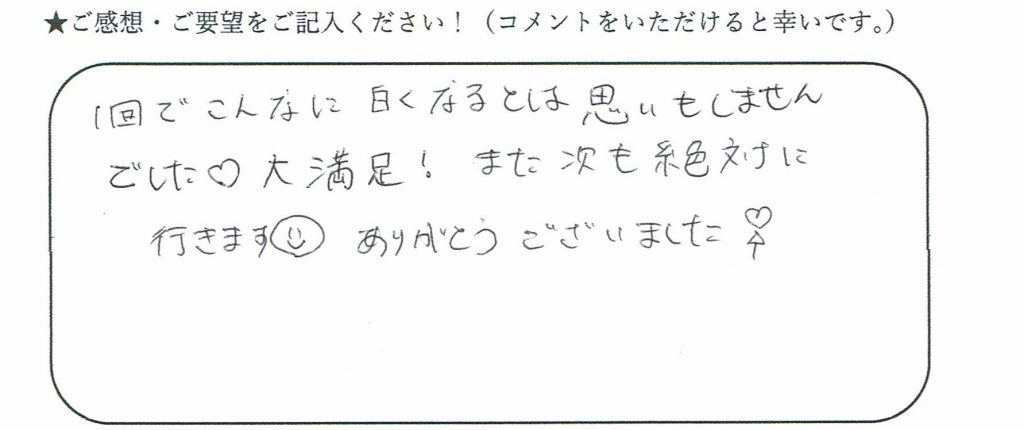 ★ご感想・ご要望をご記入ください！（コメントをいただけると幸いです。）
1回でこんなに白くなるとは思いもしません
でした♡大満足！また次も絶対に
行きます☺ありがとうございました